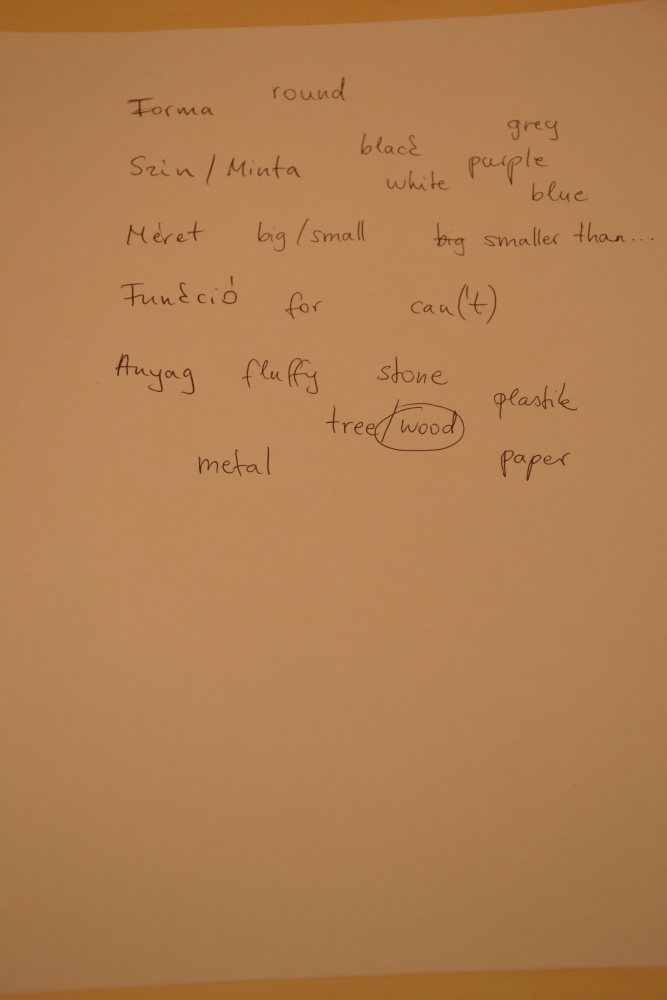 Forma round
Szín / Minta black white grey purple blue
Méret big/small big smaller than...
Funkció for can('t)
Anyag fluffy stone plastik
tree/wood
metal paper